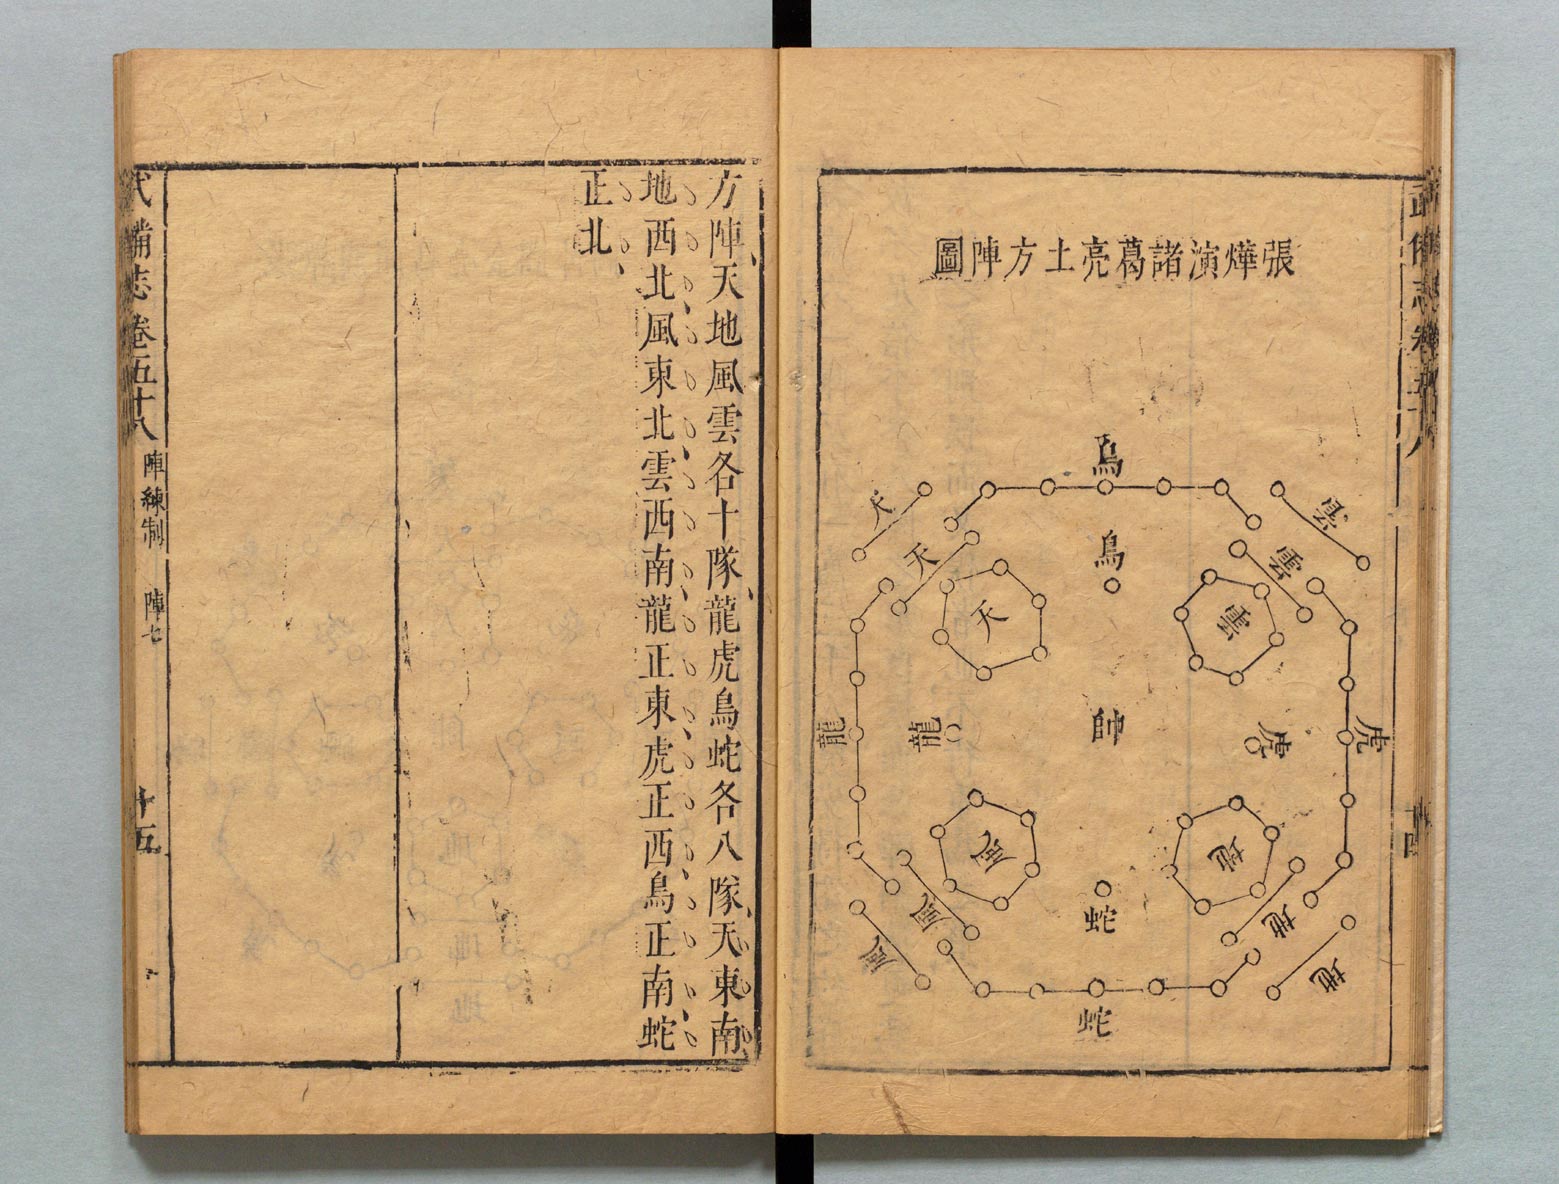 張燁演諸葛亮土方陣圖
鳥
鳥
天
天
天
雲
雲
雲
龍
龍
帥
虎
虎
風
風
風
地
地
地
蛇
蛇
方陣天地風雲各十隊龍虎鳥蛇各八隊天東南
地西北風東北雲西南龍正東虎正西鳥正南蛇
正北
武備志卷五十八
陣練制
陣七
十五